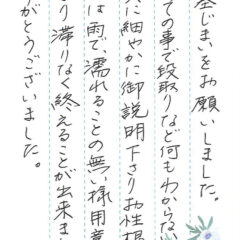 墓じまいをお願いしました。
ての事で段取りなど何もわからない
に細やかに御説明下さりお性根
は雨で、濡れることの無い様用意
り滞りなく終えることが出来まし
がとうございました。